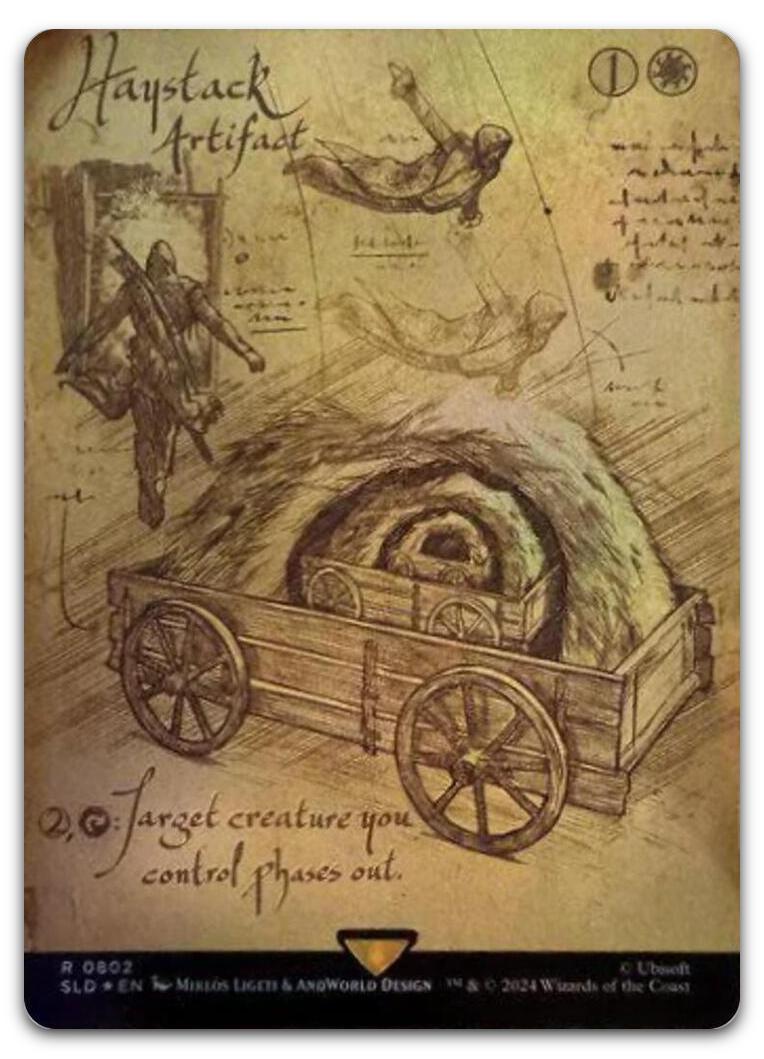 Haystack
Artifact
1
2, : Target creature you
control phases out.
R 0802
SLD ★ EN Miklós Ligeti & AndWorld Design
© Ubisoft
™ & © 2024 Wizards of the Coast